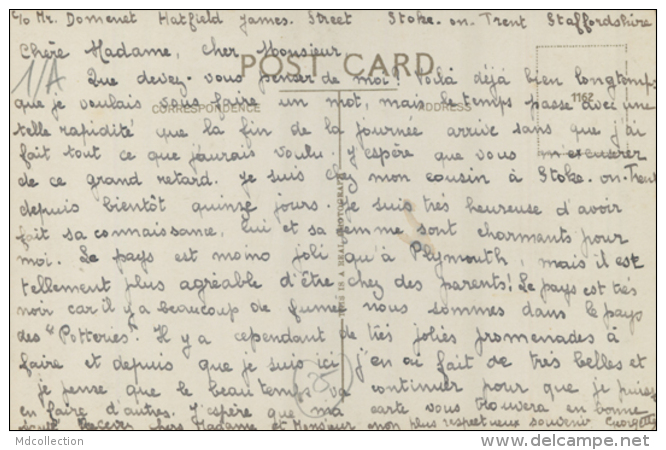 c/o Mr. Domenet Hatfield James. Street Stoke. on. Trent Staffordshire
Chère Madame, cher Monsieur
POST CARD
1/A
Que devez-vous penser de moi! Voilà déjà bien longtemps
1162
que je voulais vous faire un mot, mais le temps passe avec une
CORRESPONDENCE
ADDRESS
telle rapidité que la fin de la journée arrive sans que j'ai
fait tout ce que j'aurais voulu. J'espère que vous m'excuserez
de ce grand retard. Je suis chez mon cousin à Stoke. on. Trent
depuis bientôt quinze jours. Je suis très heureuse d'avoir
fait sa connaissance, lui et sa femme sont charmants pour
moi. Le pays est moins joli qu'à Plymouth, mais il est
tellement plus agréable d'être chez des parents! Le pays est très
noir car il y a beaucoup de fumée nous sommes dans le pays
des "Potteries". Il y a cependant de très jolies promenades à
faire et depuis que je suis ici j'en ai fait de très belles et
je pense que le beau temps va continuer pour que je puisse
en faire d'autres. J'espère que ma carte vous trouvera en bonne
santé. Recevez chers Madame et Monsieur mon plus respectueux souvenir Georgette
THIS IS A REAL PHOTOGRAPH
Mdcollection
www.delcampe.net